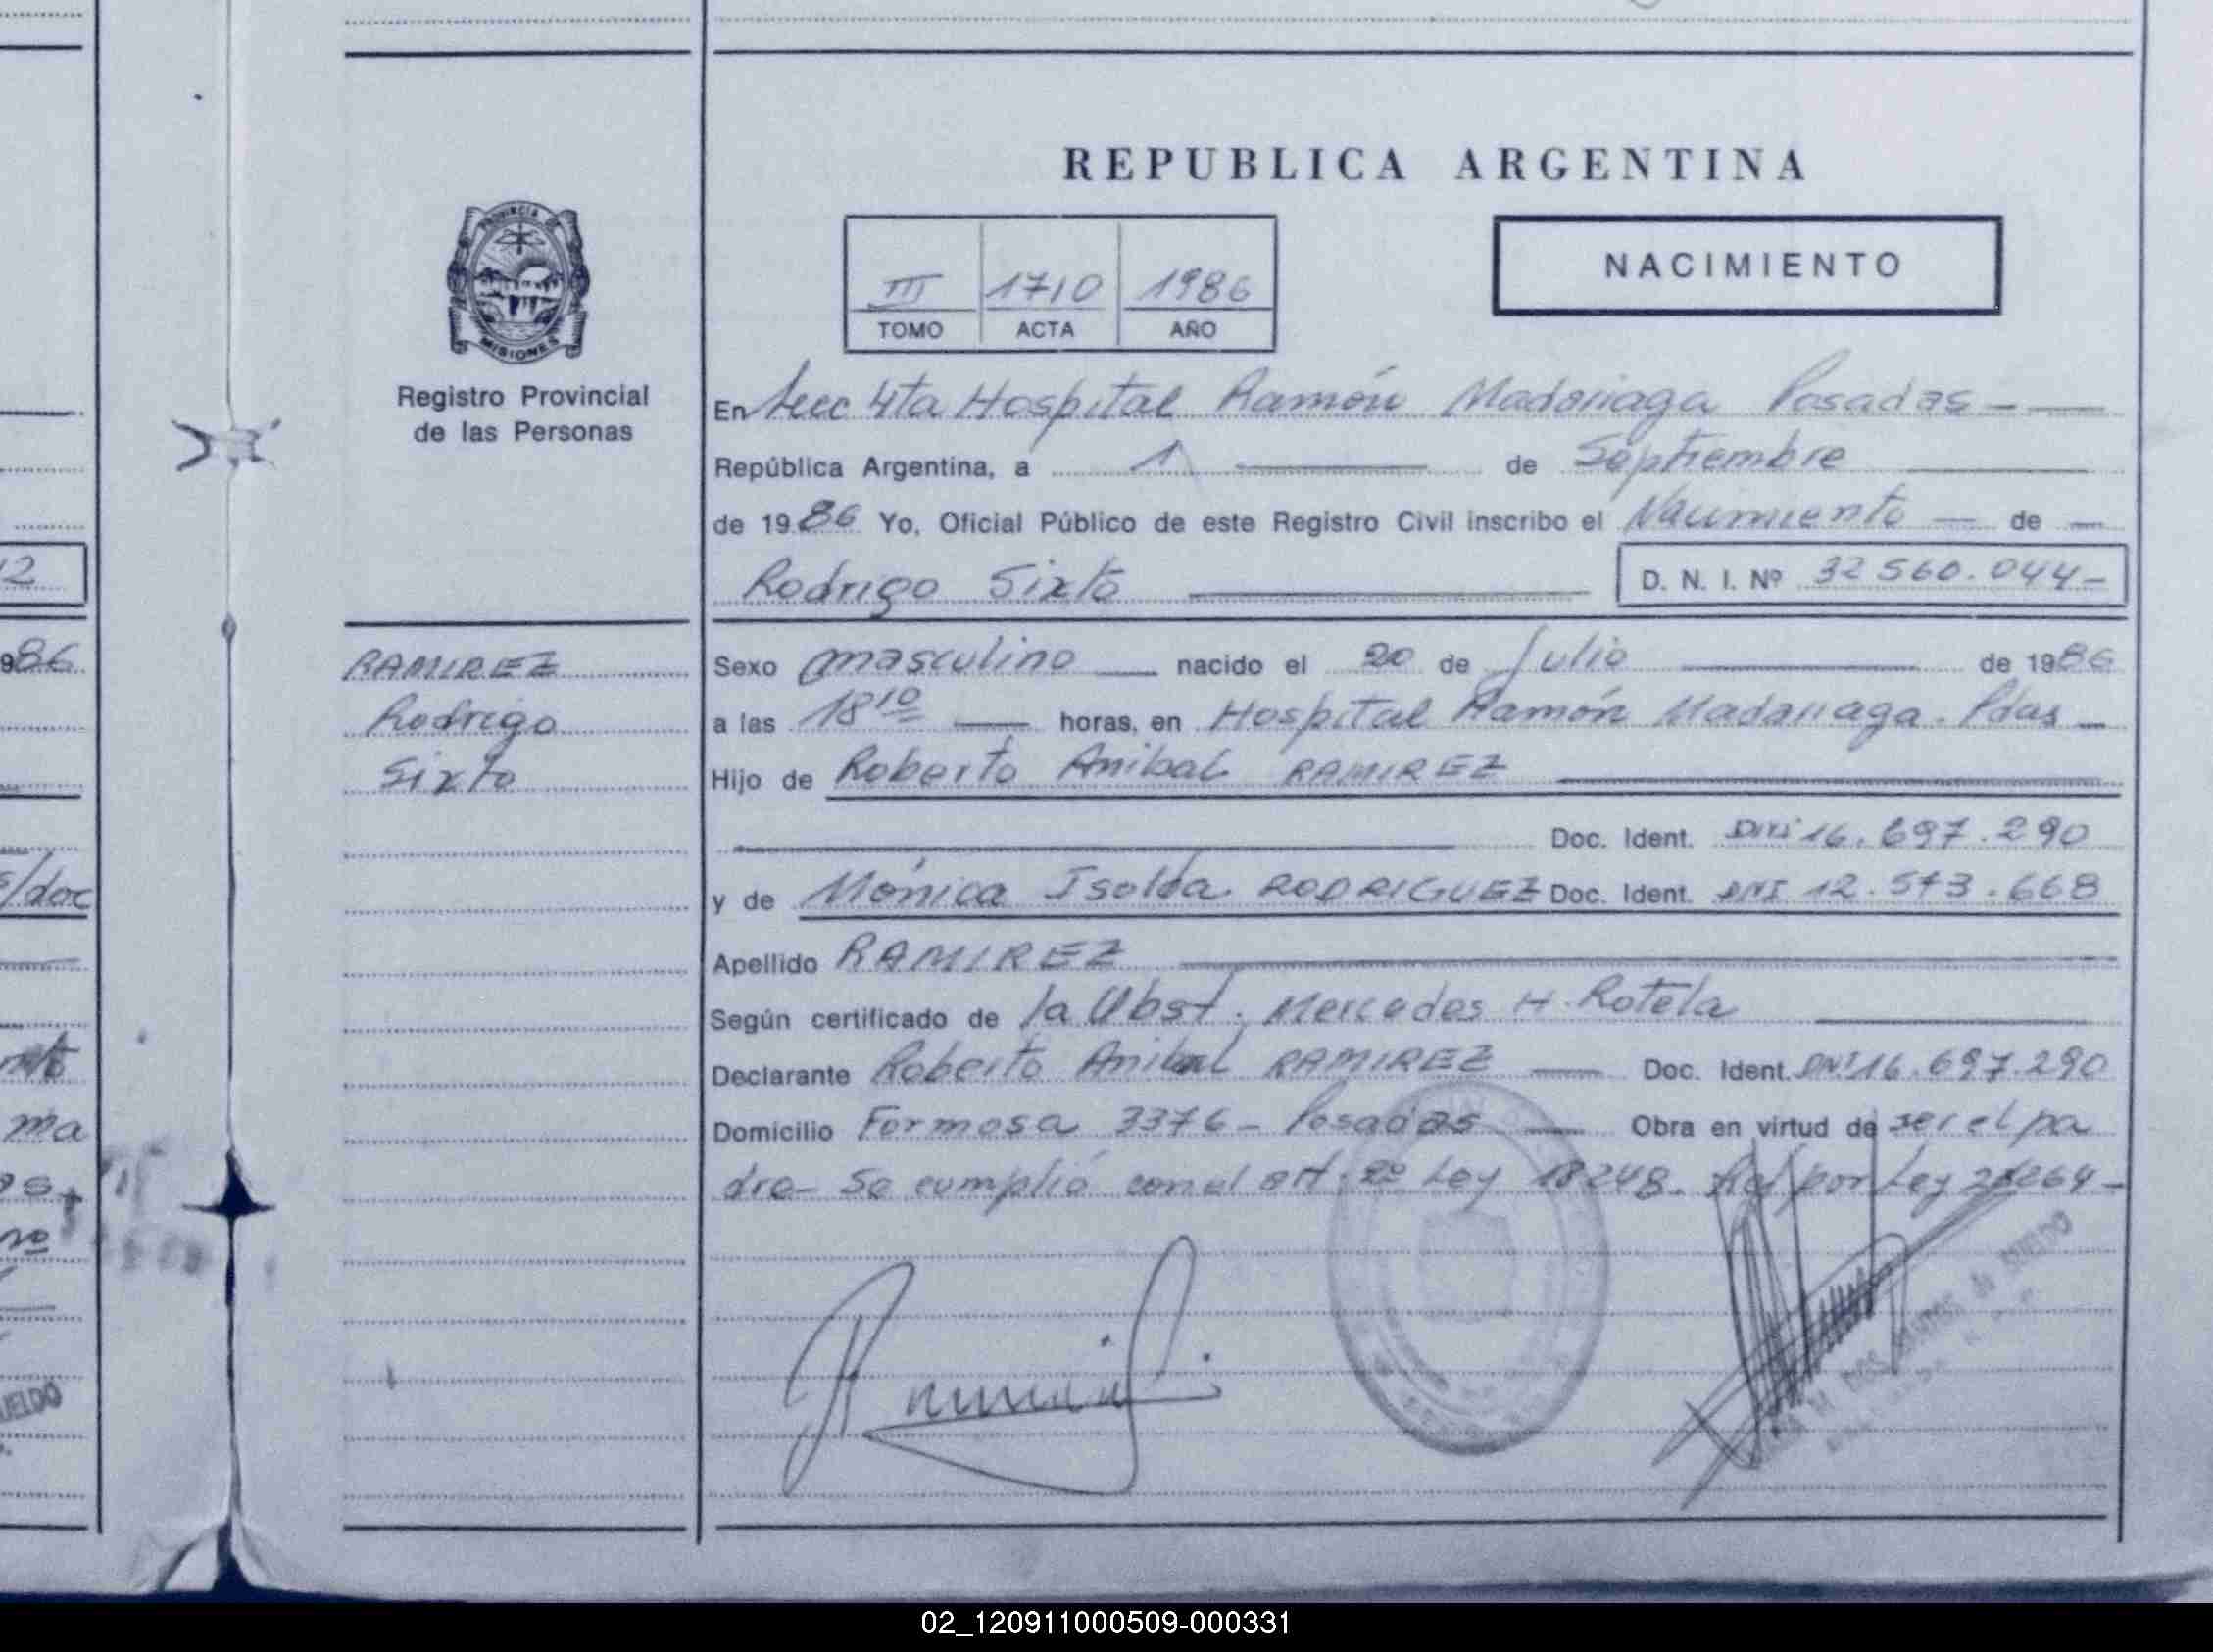 REPUBLICA ARGENTINA
NACIMIENTO
III 1710 1986
TOMO ACTA AÑO
PROVINCIA DE
MISIONES
Registro Provincial
de las Personas
En Secc 4ta Hospital Ramón Madariaga Posadas
República Argentina, a 1 de Septiembre
de 1986 Yo, Oficial Público de este Registro Civil inscribo el Nacimiento de
Rodrigo Sixto D. N. I. Nº 32560.044
RAMIREZ
Rodrigo
Sixto
Sexo masculino nacido el 20 de Julio de 1986
a las 18 10 horas, en Hospital Ramón Madariaga. Pdas
Hijo de Roberto Anibal RAMIREZ
Doc. Ident. DNI 16.697.290
y de Mónica Isolda RODRIGUEZ Doc. Ident. DNI 12.573.668
Apellido RAMIREZ
Según certificado de la Obst. Mercedes H. Rotela
Declarante Roberto Anibal RAMIREZ Doc. Ident. DNI 16.697.290
Domicilio Formosa 3376 - Posadas Obra en virtud de ser el pa
dre - Se cumplió con el art. 2º Ley 18248. por Ley
2
986
s/doc
ma
UELDO
02_120911000509-000331